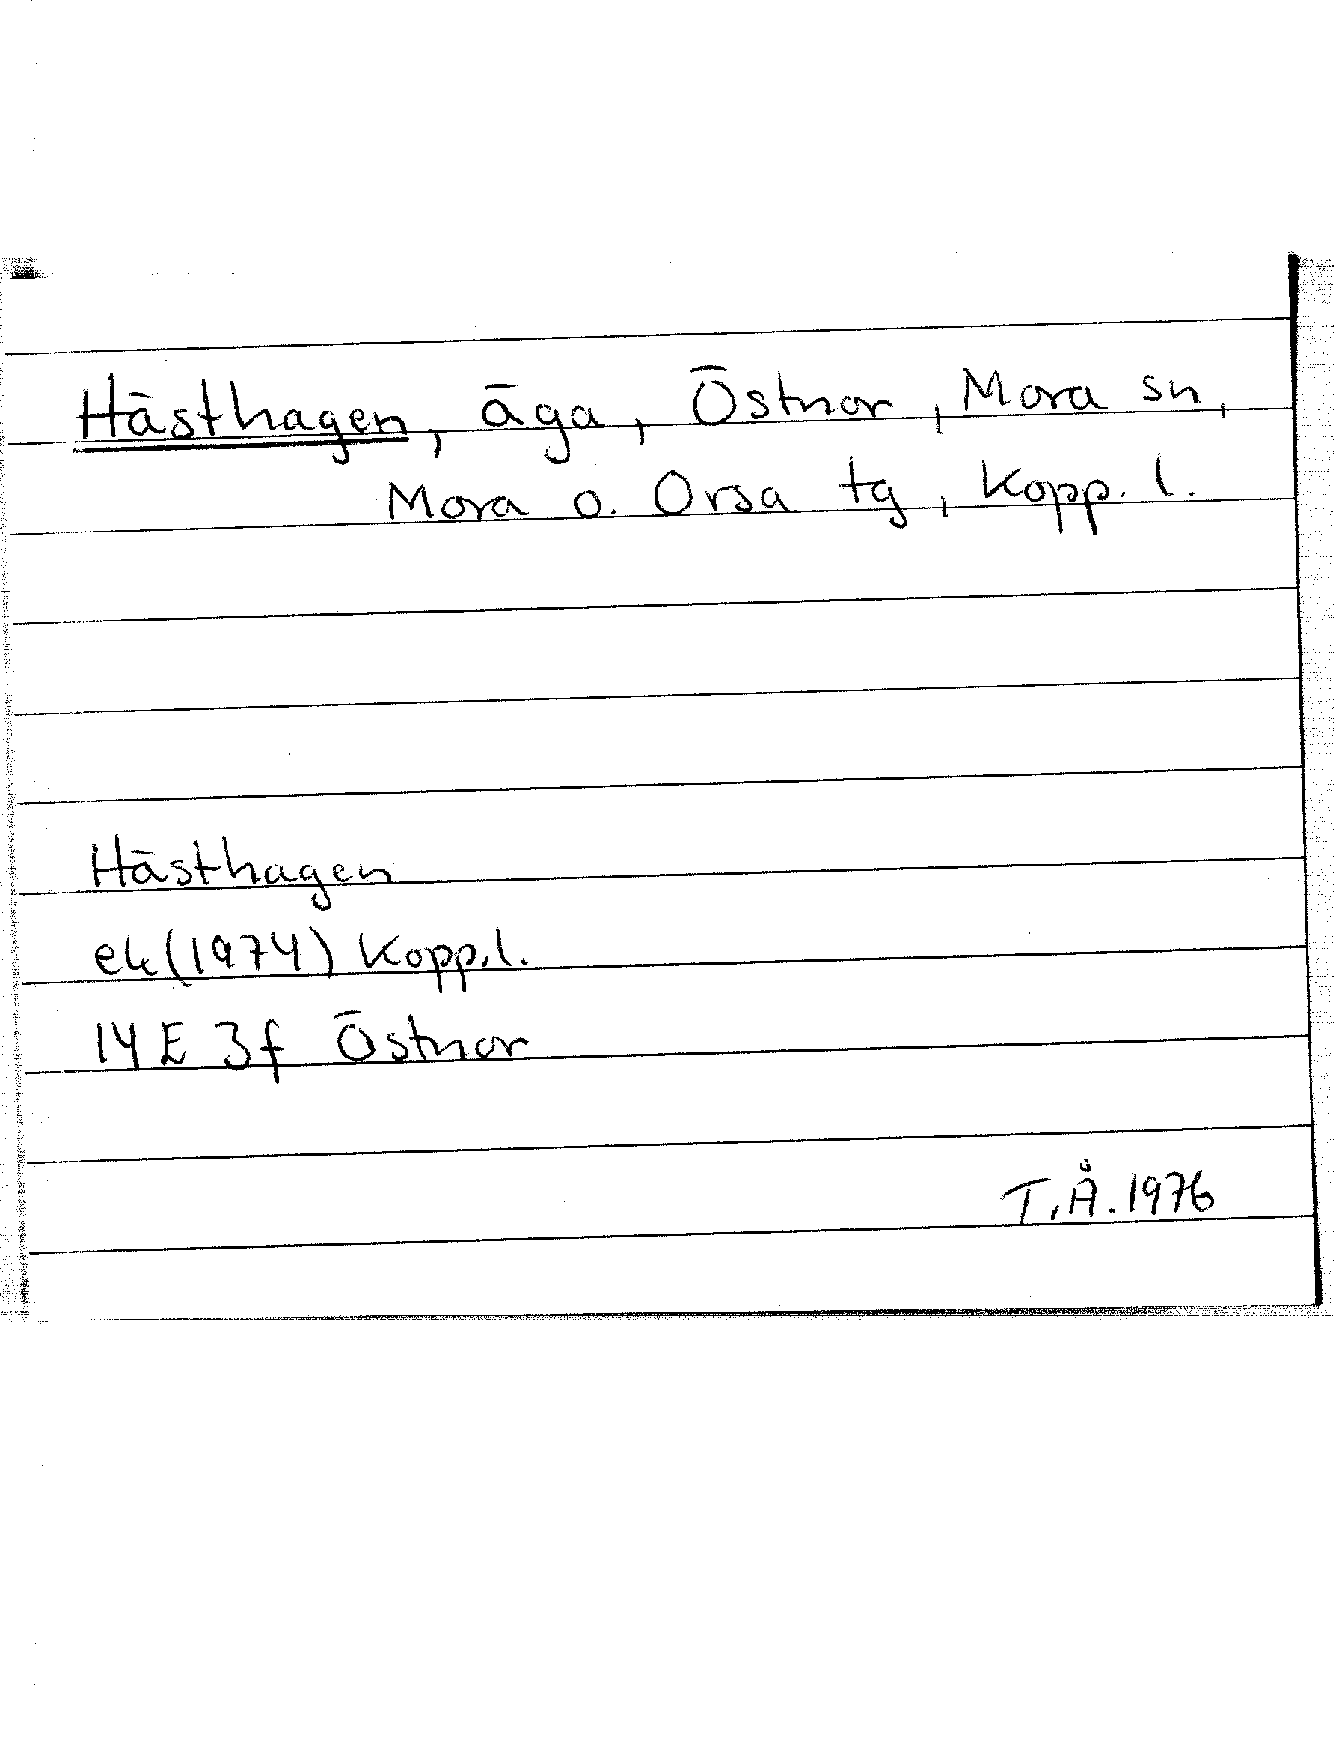 Hästhagen, äga, Östnor, Mora sn,
Mora o. Orsa tg, Kopp. l.
Hästhagen
ek (1974) Kopp.l.
14 E 3f Östnor
T.Å. 1976